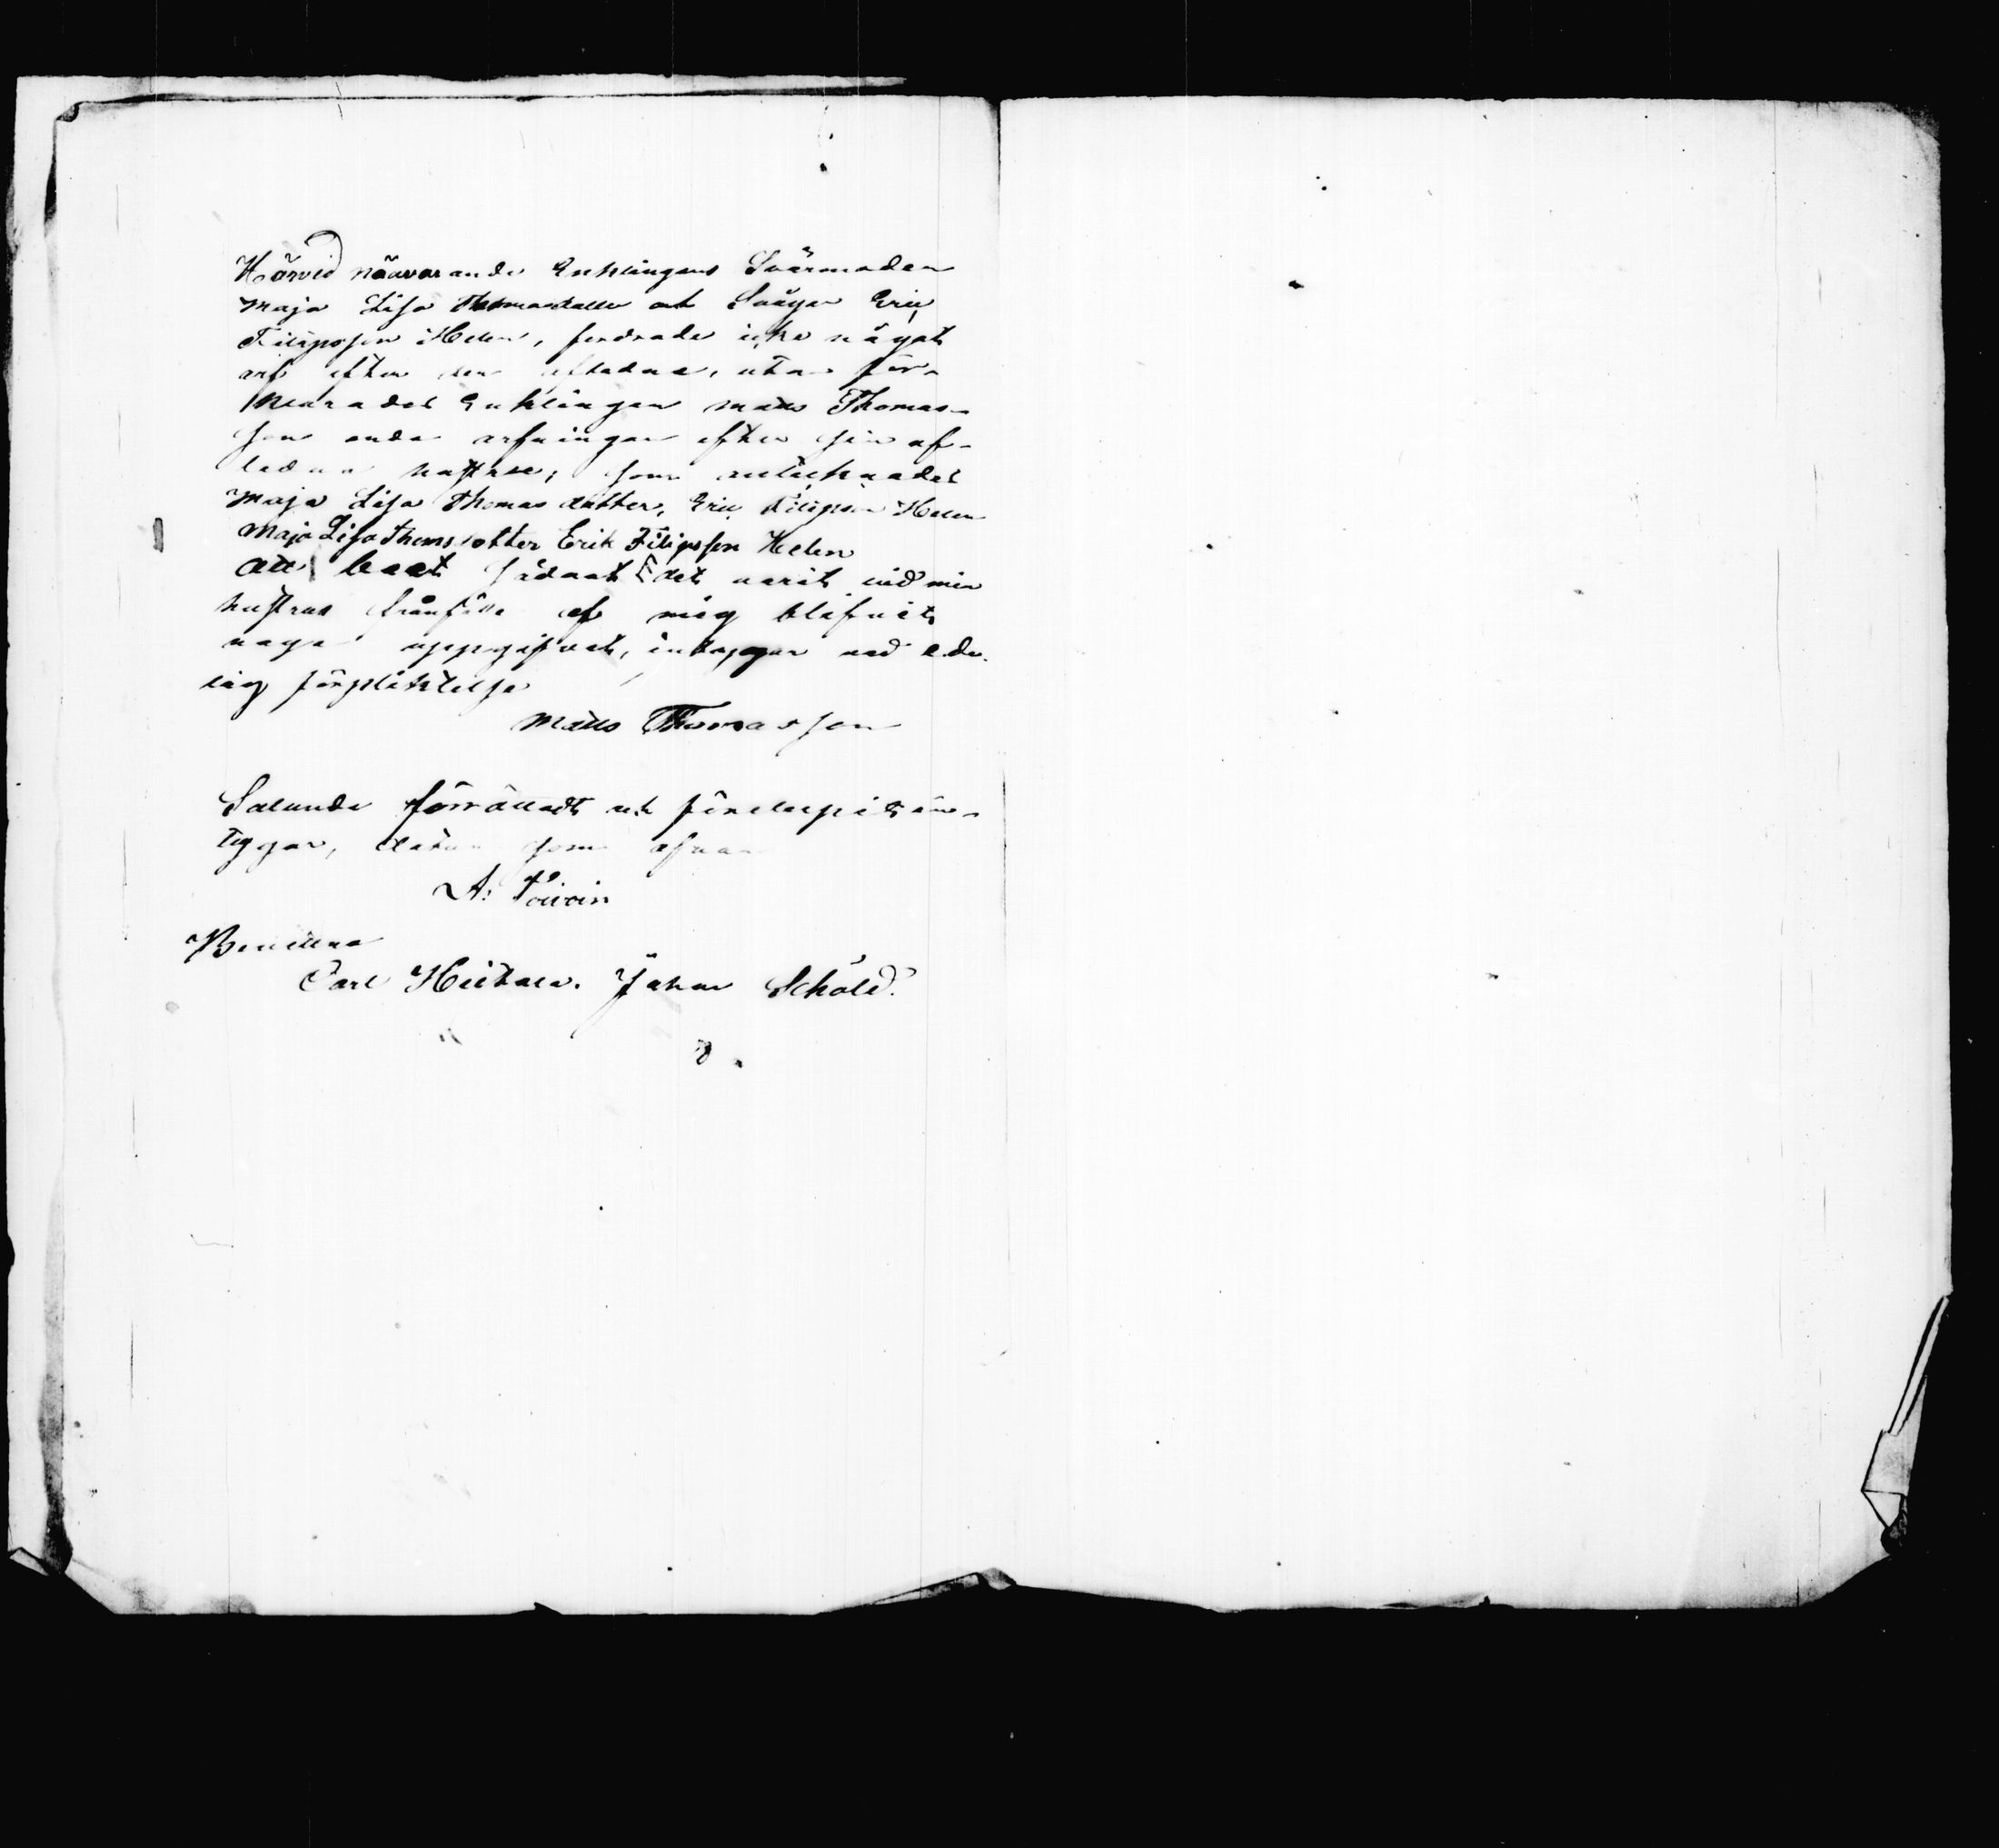 Härvid närvarande Enklingens Svärmoder
Maja Lisa Thomasdotter och Svåger Eric
Filipsson Helen, fordrade icke något
arf efter den aflidna, utan för-
klarades Enklingen Matts Thomas-
son enda arfvingen efter sin af-
lidna hustru, som antecknades
Maja Lisa Thomas dotter, Eric Filipson Helen
Maja Lisa Thomsdotter Erik Filipsson Helen
Att boet sådant det varit vid min
hustrus frånfälle af mig blifvit
noga uppgifvet, intygar med ede-
lig förpliktelse
Matts Thomasson
Salunda förrättadt och in-
tygar, datum som ofvan
A. Toivoin
Bevittna
Carl Heikala. Johan Schöld.